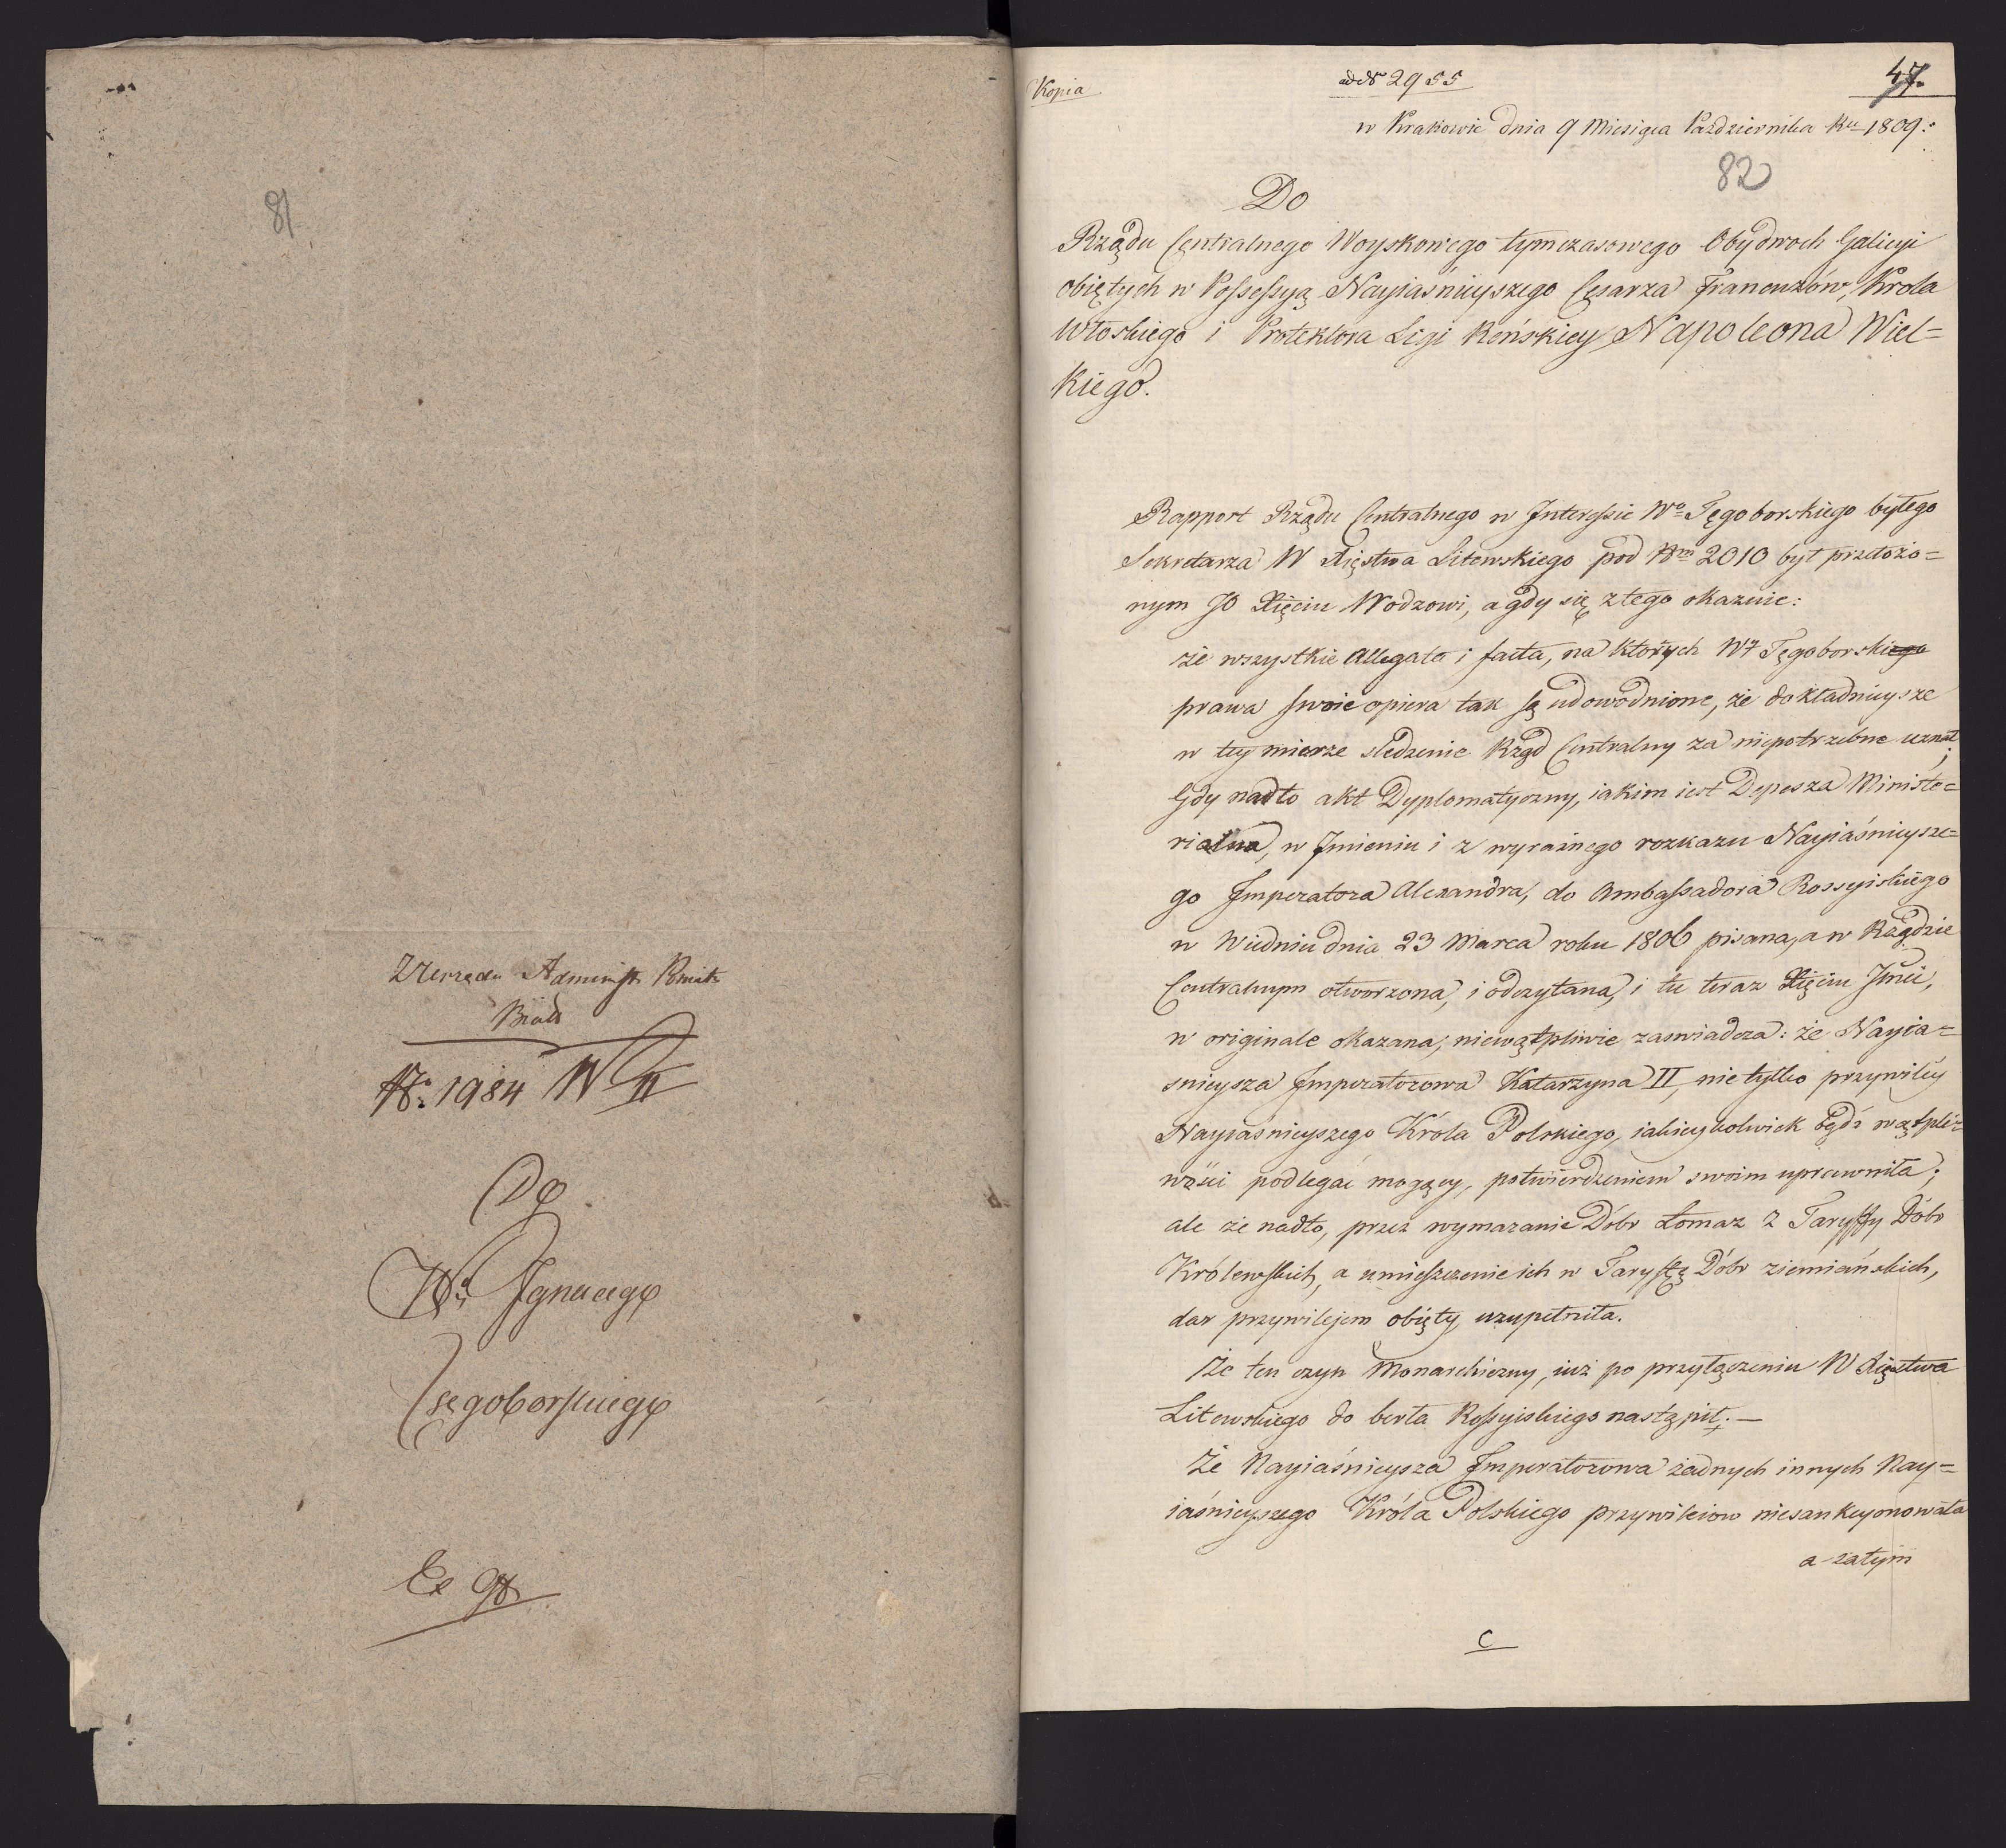 81
Z Urzędu Administ. Powiatu
Bials
No. 1984 W II
Do
Wo Ignacego
Tęgoborskiego
Ex Off
Kopia
ad No 2955
47.
w Krakowie dnia 9 Miesiąca Października Ru 1809.
82
Do
Rządu Centralnego Woyskowego tymczasowego Obydwoch Galicyi
obiętych w Possessyą Nayiaśnieyszego Cesarza Francuzów, Krola
Włoskiego i Protektora Ligi Reńskiey Napoleona Wiel=
kiego.
Rapport Rządu Centralnego w Interessie Wo Tęgoborskiego byłego
Sekretarza W Xięstwa Litewskiego pod Nrm 2010 był przedożo=
nym JO Xięciu Wodzowi, a gdy się z tego okazuie:
że wszystkie Allegata i facta, na których W Tęgoborskiego
prawa swoie opiera tak są udowodnione, że dokładnieysze
w tey mierze śledzenie Rząd Centralny za niepotrzebne uznał;
Gdy nadto akt Dyplomatyczny, iakim iest Depesza Ministe=
rialna, w Imieniu i z wyraźnego rozkazu Nayiaśnieysze=
go Imperatora Alexandra, do Ambassadora Rossyiskiego
w Wiedniu dnia 23 Marca roku 1806 pisana, a w Rządzie
Centralnym otworzona, i odczytana, i tu teraz Xięciu Jmci,
w originale okazana, niewątpliwie zaswiadcza: że Nayia=
snieysza Imperatorowa Katarzyna II, nie tylko przywiley
Nayiaśnieyszego Króla Polskiego, iakieykolwiek bądź wątpli=
wości podlegać mogący, potwierdzeniem swoim uprawniła;
ale że nadto, przez wymazanie Dóbr Łomaz z Taryffy Dóbr
Królewskich, a umieszczenie ich w Taryffę Dóbr ziemiańskich,
dar przywilejem obięty uzupełniła.
Że ten czyn Monarchiczny, iuż po przyłączeniu W Xięstwa
Litewskiego do berła Rossyiskiego nastąpił;—
Że Nayiaśnieysza Imperatorowa żadnych innych Nay=
iaśnieyszego Króla Polskiego przywileiow niesankcyonowała
a zatym
C